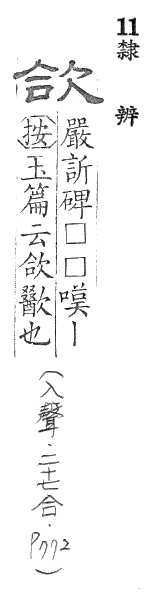 11隸辨
欱
嚴訢碑□□嘆丨
按玉篇云欱歠也
(入聲·二十七合·P772)